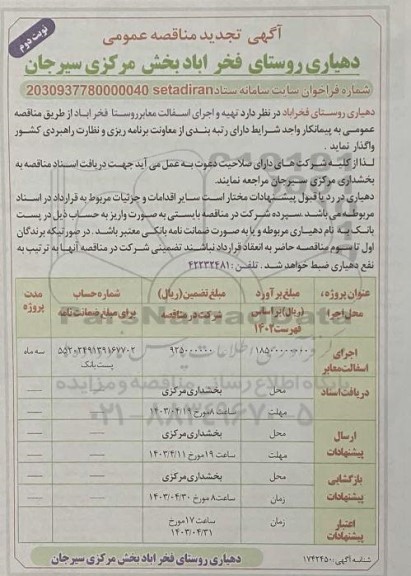 نوبت دوم
آگهی تجدید مناقصه عمومی
دهیاری روستای فخر اباد بخش مرکزی سیرجان
شماره فراخوان سایت سامانه ستاد setadiran 2030937780000040
دهیاری روستای فخراباد در نظر دارد تهیه و اجرای اسفالت معابر روستا فخر آباد از طریق مناقصه
عمومی به پیمانکار واجد شرایط دارای رتبه بندی از معاونت برنامه ریزی و نظارت راهبردی کشور
واگذار نماید .
لذا از کلیه شرکت های دارای صلاحیت دعوت به عمل می آید جهت دریافت اسناد مناقصه به
بخشداری مرکزی سیرجان مراجعه نمایند.
دهیاری در رد یا قبول پیشنهادات مختار است سایر اقدامات و جزئیات مربوط به قرارداد در اسناد
مربوطه می باشد .سپرده شرکت در مناقصه بایستی به صورت واریز به حساب ذیل در پست
بانک به نام دهیاری مربوطه و یا به صورت ضمانت نامه بانکی معتبر باشد . در صورتیکه برندگان
اول تا سوم مناقصه حاضر به انعقاد قرارداد نباشند تضمینی شرکت در مناقصه آنها به ترتیب به
نفع دهیاری ضبط خواهد شد . تلفن : ۴۲۲۳۲۴۸۱
عنوان پروژه ، محل اجرا مبلغ برآورد (ریال) بر اساس فهرست ۱۴۰۲ مبلغ تضمین (ریال) شرکت در مناقصه شماره حساب برای مبلغ ضمانت نامه مدت پروژه
اجرای اسفالت معابر ۱۸۵۰۰۰۰۰۰۰۰ ۹۲۵۰۰۰۰۰۰ پست بانک سه ماه
دریافت اسناد محل بخشداری مرکزی
مهلت ساعت ۸ مورخ ۱۴۰۳/۰۴/۱۹
ارسال پیشنهادات محل بخشداری مرکزی
مهلت ساعت ۱۹ مورخ ۱۴۰۳/۴/۱۱
بازگشایی پیشنهادات محل بخشداری مرکزی
زمان ساعت ۸ مورخ ۱۴۰۳/۰۴/۳۰
اعتبار پیشنهادات زمان ساعت ۱۷ مورخ ۱۴۰۳/۰۴/۳۱
دهیاری روستای فخر اباد بخش مرکزی سیرجان
شناسه آگهی: ۱۷۴۲۴۵۰۰
ParsNamadData
پایگاه اطلاع رسانی مناقصه و مزایده
۰۲۱-۸۸۳۴۹۶۷۰-۵